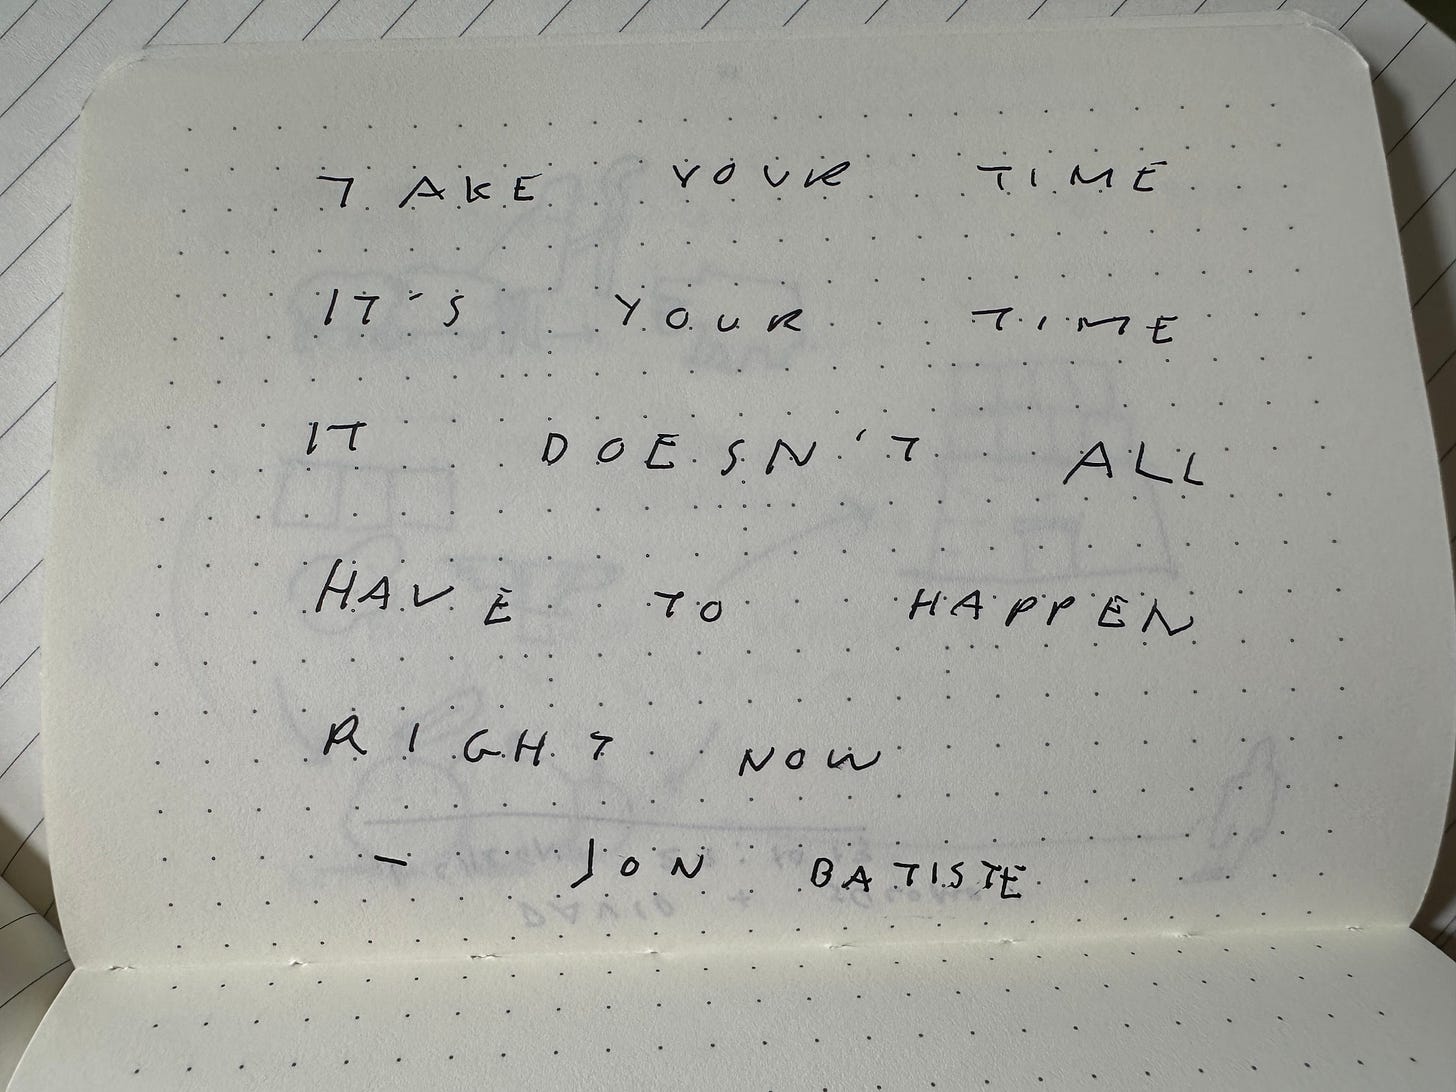 TAKE YOUR TIME
IT'S YOUR TIME
IT DOESN'T ALL
HAVE TO HAPPEN
RIGHT NOW
- JON BATISTE